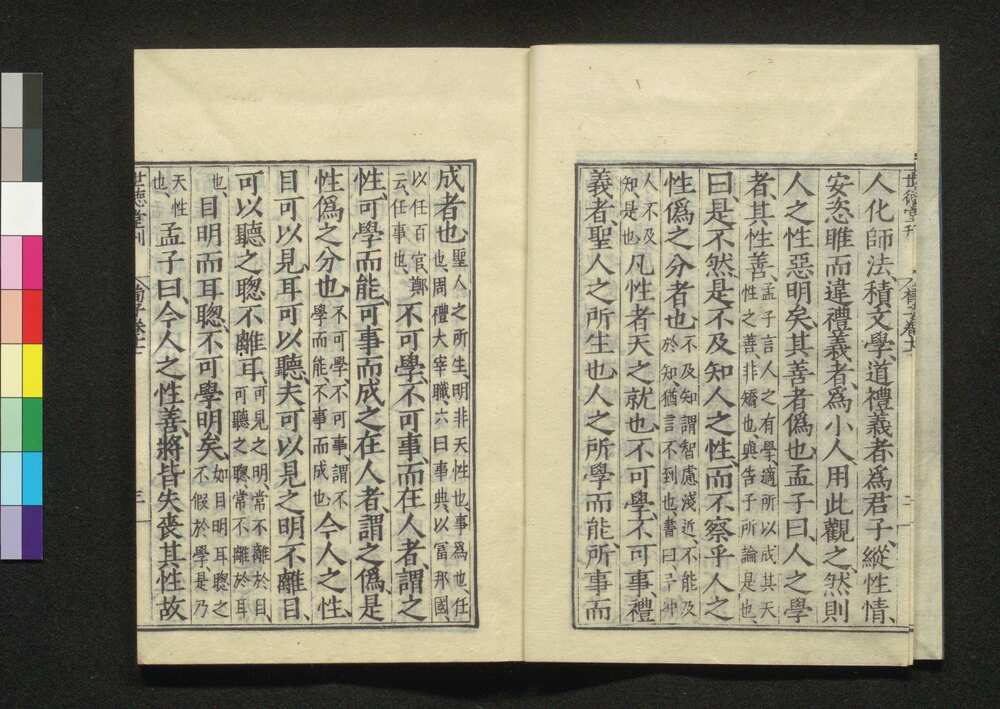 人化師法、積文學、道禮義者、爲君子、縱性情、
安恣睢、而違禮義者、爲小人、用此觀之、然則
人之性惡明矣、其善者僞也、孟子曰、人之學
者、其性善、孟子言人之有學適所以成其天性之善非矯也與告子所論是也、
曰、是不然、是不及知人之性、而不察乎人之
性僞之分者也、不及知謂智慮淺近、不能及於知、猶言不到也、書曰、予沖
人不及知是也凡性者、天之就也、不可學、不可事、禮
義者、聖人之所生也、人之所學而能、所事而
成者也、聖人之所生、明非天性也、事爲也、任也、周禮大宰職、六曰事典、以富邦國、
以任百官、鄭云、任事也、不可學、不可事、而在人者、謂之
性、可學而能、可事而成之在人者、謂之僞、是
性僞之分也、不可學不可事、謂不學而能、不事而成也今人之性、
目可以見、耳可以聽、夫可以見之明不離目、
可以聽之聰不離耳、可見之明、常不離於目、可聽之聰常不離於耳
也、目明而耳聰、不可學明矣、如目明耳聰之不假於學、是乃
天性也、孟子曰、今人之性善、將皆失喪其性故
世德堂刊
荀子卷十七
三